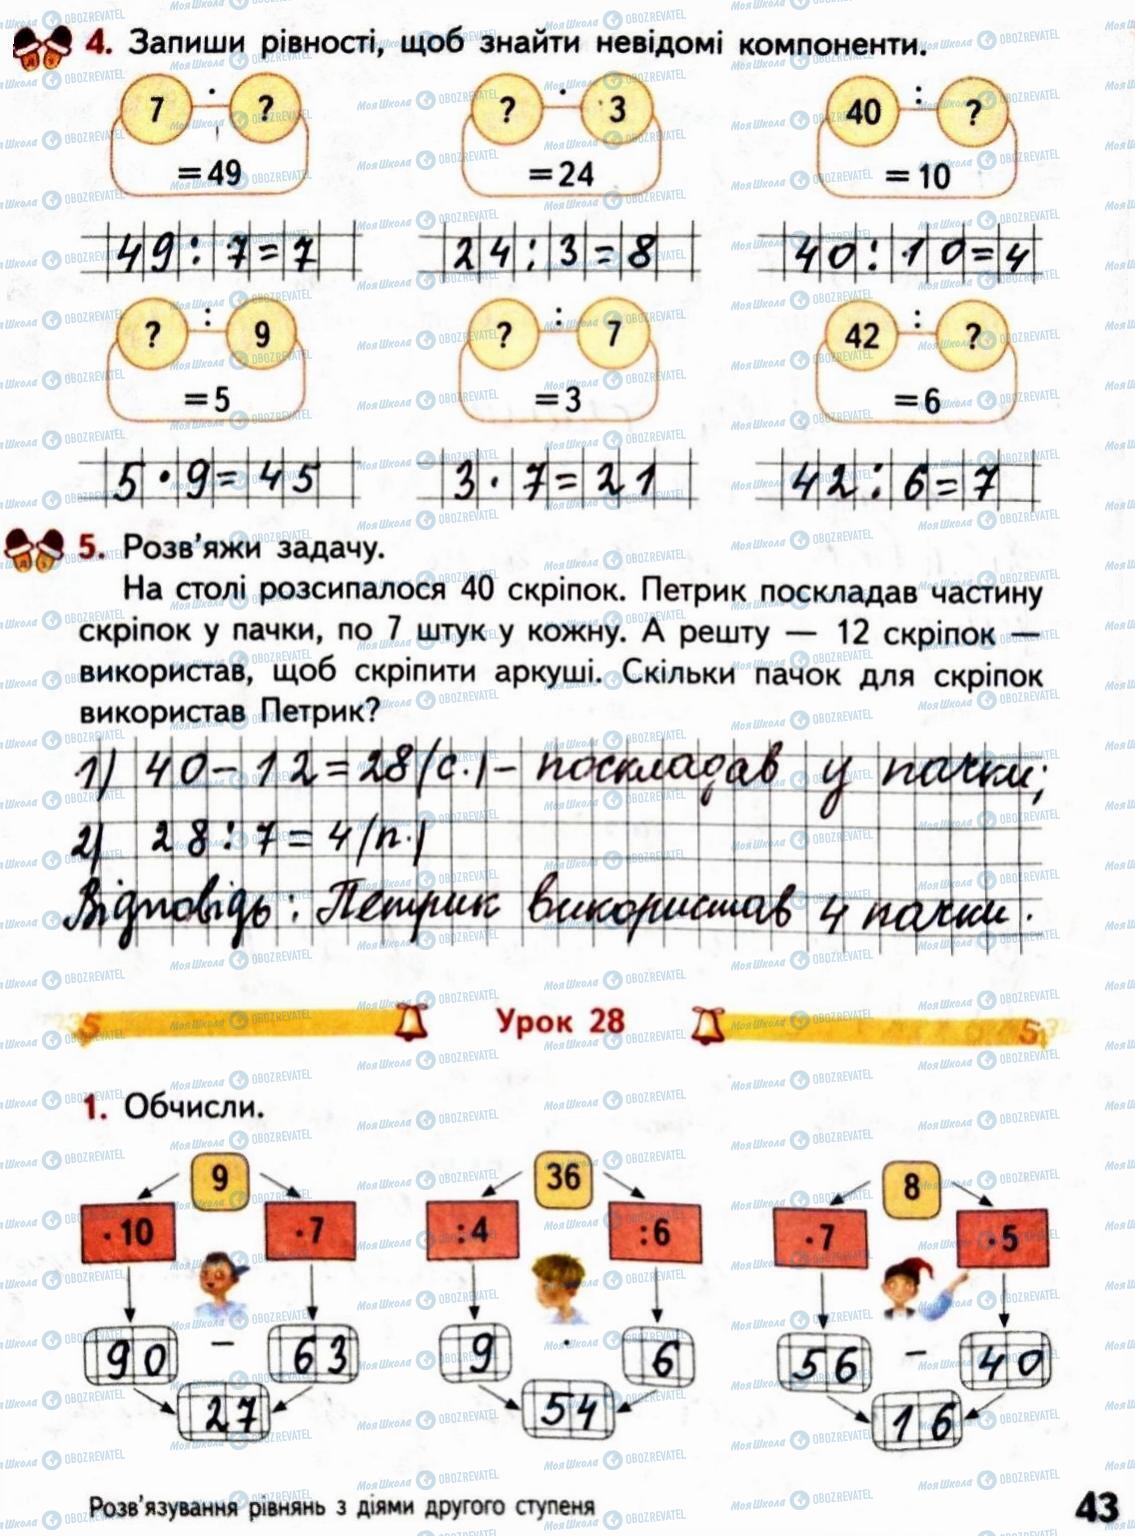 4. Запиши рівності, щоб знайти невідомі компоненти.
7 · ? ? · 3 40 : ?
= 49 = 24 = 10
49:7=7 24:3=8 40:10=4
? : 9 ? : 7 42 : ?
= 5 = 3 = 6
5·9=45 3·7=21 42:6=7
5. Розв'яжи задачу.
На столі розсипалося 40 скріпок. Петрик поскладав частину
скріпок у пачки, по 7 штук у кожну. А решту — 12 скріпок —
використав, щоб скріпити аркуші. Скільки пачок для скріпок
використав Петрик?
1) 40-12=28(с.)- поскладав у пачки;
2) 28:7=4(п.)
Відповідь: Петрик використав 4 пачки.
Урок 28
1. Обчисли.
9 36 8
·10 ·7 :4 :6 ·7 ·5
90 – 63 9 · 6 56 – 40
27 54 16
Розв'язування рівнянь з діями другого ступеня
43
МояШкола OBOZREVATEL